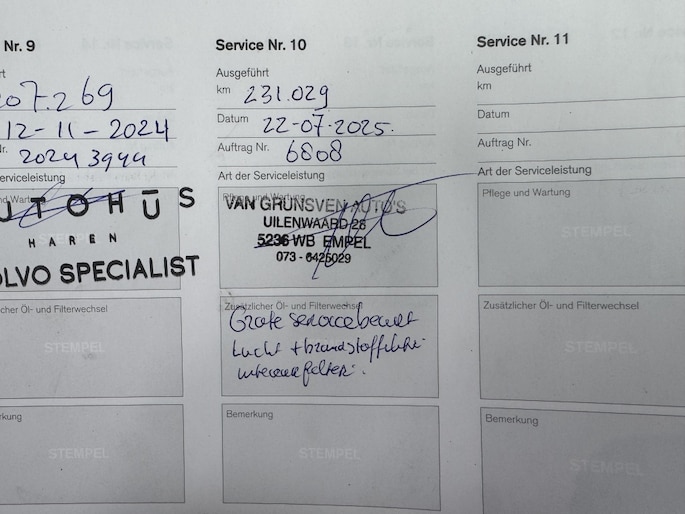 Nr. 9
207.269
12-11-2024
Nr.
2024 3944
Serviceleistung
AUTOHŪS
HAREN
VOLVO SPECIALIST
cher Öl- und Filterwechsel
STEMPEL
kung
STEMPEL
Service Nr. 10
Ausgeführt
km 231.029
Datum 22-07-2025.
Auftrag Nr. 6808
Art der Serviceleistung
Pflege und Wartung
VAN GRUNSVEN AUTO'S
UILENWAARD 28
5236 WB EMPEL
073 - 6425029
Zusätzlicher Öl- und Filterwechsel
Grote servicebeurt
Lucht + brandstoffilter
interieurfilter.
Bemerkung
STEMPEL
Service Nr. 11
Ausgeführt
km
Datum
Auftrag Nr.
Art der Serviceleistung
Pflege und Wartung
STEMPEL
Zusätzlicher Öl- und Filterwechsel
STEMPEL
Bemerkung
STEMPEL